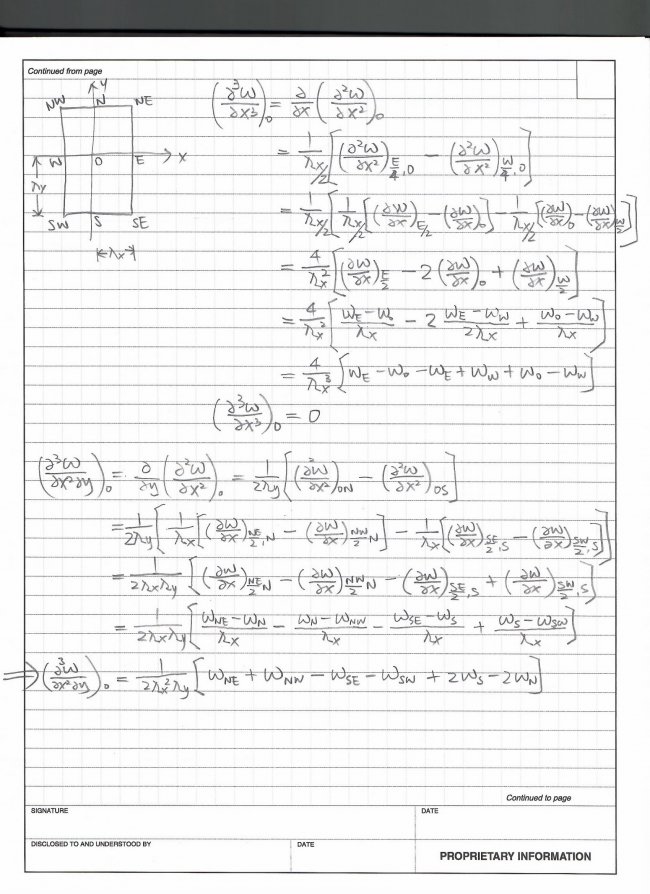 Continued from page
y
NW N NE
W O E x
λy
SW S SE
λx
(∂³ω/∂x³)₀ = ∂/∂x (∂²ω/∂x²)₀
= 1/(λx/2) [(∂²ω/∂x²)_{E/4,0} − (∂²ω/∂x²)_{W/4,0}]
= 1/(λx/2) [1/(λx/2) [(∂ω/∂x)_{E/2} − (∂ω/∂x)₀] − 1/(λx/2) [(∂ω/∂x)₀ − (∂ω/∂x)_{W/2}]]
= 4/λx² [(∂ω/∂x)_{E/2} − 2(∂ω/∂x)₀ + (∂ω/∂x)_{W/2}]
= 4/λx² [(ω_E − ω₀)/λx − 2 (ω_E − ω_W)/2λx + (ω₀ − ω_W)/λx]
= 4/λx³ [ω_E − ω₀ − ω_E + ω_W + ω₀ − ω_W]
(∂³ω/∂x³)₀ = 0
(∂³ω/∂x²∂y)₀ = ∂/∂y (∂²ω/∂x²)₀ = 1/2λy [(∂²ω/∂x²)_{ON} − (∂²ω/∂x²)_{OS}]
= 1/2λy [1/λx [(∂ω/∂x)_{NE/2,N} − (∂ω/∂x)_{NW/2,N}] − 1/λx [(∂ω/∂x)_{SE/2,S} − (∂ω/∂x)_{SW/2,S}]]
= 1/2λxλy [(∂ω/∂x)_{NE/2,N} − (∂ω/∂x)_{NW/2,N} − (∂ω/∂x)_{SE/2,S} + (∂ω/∂x)_{SW/2,S}]
= 1/2λxλy [(ω_NE − ω_N)/λx − (ω_N − ω_NW)/λx − (ω_SE − ω_S)/λx + (ω_S − ω_SW)/λx]
⇒ (∂³ω/∂x²∂y)₀ = 1/2λx²λy [ω_NE + ω_NW − ω_SE − ω_SW + 2ω_S − 2ω_N]
Continued to page
SIGNATURE DATE
DISCLOSED TO AND UNDERSTOOD BY DATE
PROPRIETARY INFORMATION